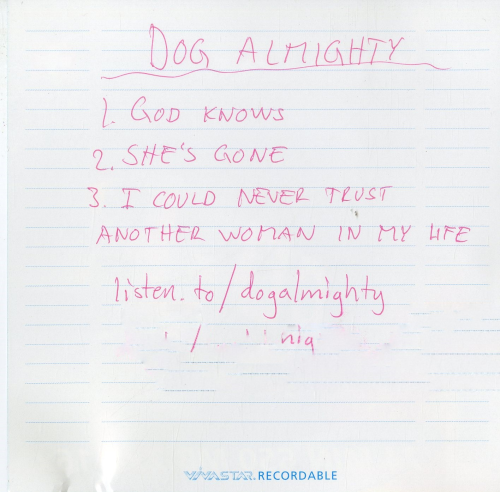 DOG ALMIGHTY
1. GOD KNOWS
2. SHE'S GONE
3. I COULD NEVER TRUST
ANOTHER WOMAN IN MY LIFE
listen.to/dogalmighty
VIVASTAR. RECORDABLE